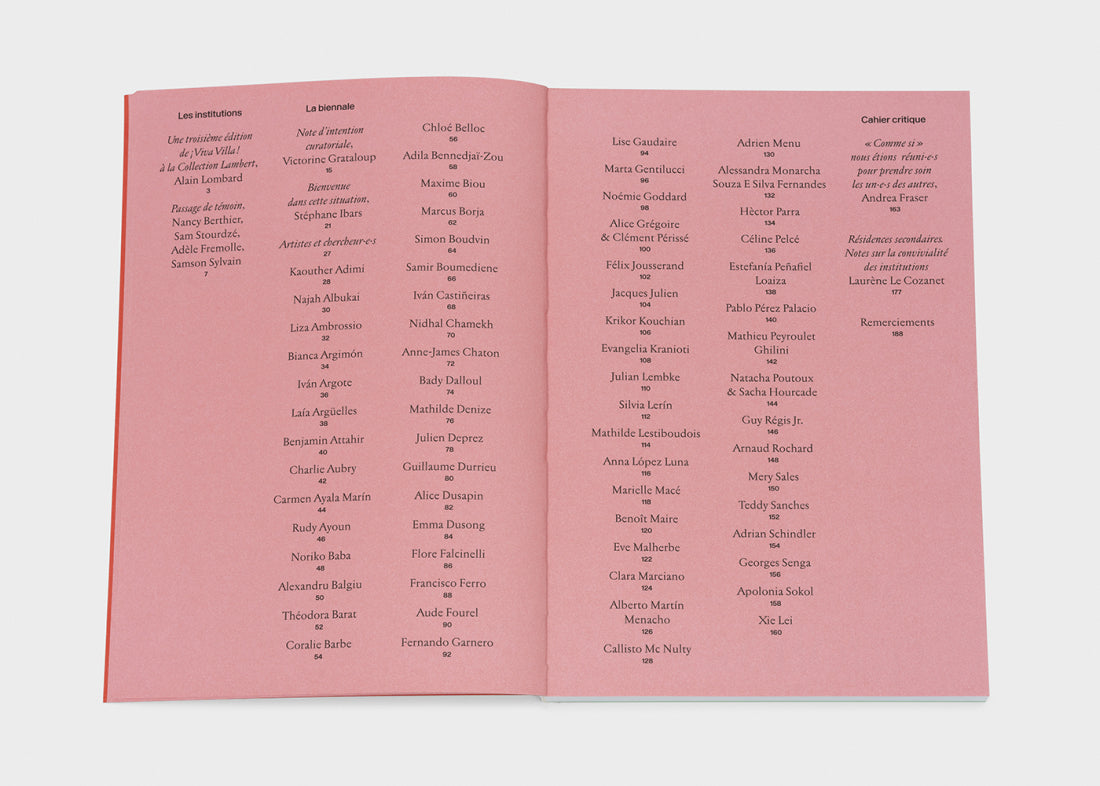 Les institutions
Une troisième édition
de ¡Viva Villa !
à la Collection Lambert,
Alain Lombard
3
Passage de témoin,
Nancy Berthier,
Sam Stourdzé,
Adèle Fremolle,
Samson Sylvain
7
La biennale
Note d’intention
curatoriale,
Victorine Grataloup
15
Bienvenue
dans cette situation,
Stéphane Ibars
21
Artistes et chercheur·e·s
27
Kaouther Adimi
28
Najah Albukai
30
Liza Ambrossio
32
Bianca Argimón
34
Iván Argote
36
Laía Argüelles
38
Benjamin Attahir
40
Charlie Aubry
42
Carmen Ayala Marín
44
Rudy Ayoun
46
Noriko Baba
48
Alexandru Balgiu
50
Théodora Barat
52
Coralie Barbe
54
Chloé Belloc
56
Adila Bennedjaï-Zou
58
Maxime Biou
60
Marcus Borja
62
Simon Boudvin
64
Samir Boumediene
66
Iván Castiñeiras
68
Nidhal Chamekh
70
Anne-James Chaton
72
Bady Dalloul
74
Mathilde Denize
76
Julien Deprez
78
Guillaume Durrieu
80
Alice Dusapin
82
Emma Dusong
84
Flore Falcinelli
86
Francisco Ferro
88
Aude Fourel
90
Fernando Garnero
92
Lise Gaudaire
94
Marta Gentilucci
96
Noémie Goddard
98
Alice Grégoire
& Clément Périssé
100
Félix Jousserand
102
Jacques Julien
104
Krikor Kouchian
106
Evangelia Kranioti
108
Julian Lembke
110
Silvia Lerín
112
Mathilde Lestiboudois
114
Anna López Luna
116
Marielle Macé
118
Benoît Maire
120
Eve Malherbe
122
Clara Marciano
124
Alberto Martín
Menacho
126
Callisto Mc Nulty
128
Adrien Menu
130
Alessandra Monarcha
Souza E Silva Fernandes
132
Hèctor Parra
134
Céline Pelcé
136
Estefanía Peñafiel
Loaiza
138
Pablo Pérez Palacio
140
Mathieu Peyroulet
Ghilini
142
Natacha Poutoux
& Sacha Hourcade
144
Guy Régis Jr.
146
Arnaud Rochard
148
Mery Sales
150
Teddy Sanches
152
Adrian Schindler
154
Georges Senga
156
Apolonia Sokol
158
Xie Lei
160
Cahier critique
« Comme si »
nous étions réuni·e·s
pour prendre soin
les un·e·s des autres,
Andrea Fraser
163
Résidences secondaires.
Notes sur la convivialité
des institutions
Laurène Le Cozanet
177
Remerciements
188